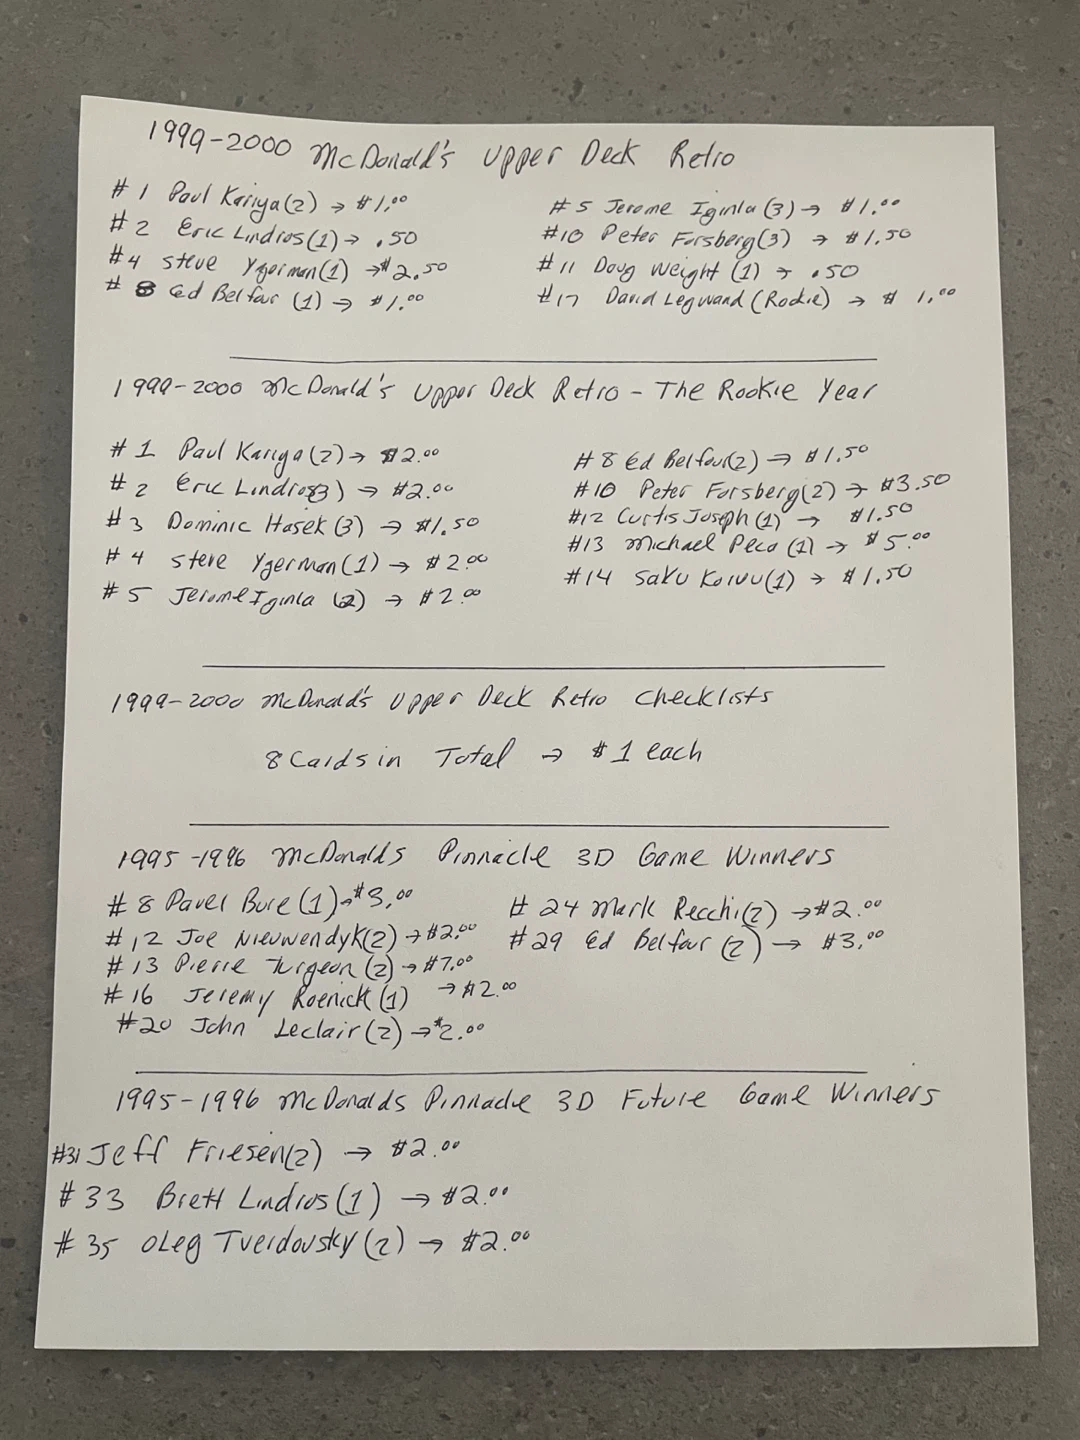 1999-2000 McDonald's Upper Deck Retro
#1 Paul Kariya (2) → $1.00
#2 Eric Lindros (1) → .50
#4 Steve Yzerman (1) → $2.50
#8 Ed Belfour (1) → $1.00
#5 Jerome Iginla (3) → $1.00
#10 Peter Forsberg (3) → $1.50
#11 Doug Weight (1) → .50
#17 David Legwand (Rookie) → $1.00
1999-2000 McDonald's Upper Deck Retro - The Rookie Year
#1 Paul Kariya (2) → $2.00
#2 Eric Lindros (3) → $2.00
#3 Dominic Hasek (3) → $1.50
#4 Steve Yzerman (1) → $2.00
#5 Jerome Iginla (2) → $2.00
#8 Ed Belfour (2) → $1.50
#10 Peter Forsberg (2) → $3.50
#12 Curtis Joseph (1) → $1.50
#13 Michael Peca (1) → $5.00
#14 Saku Koivu (1) → $1.50
1999-2000 McDonald's Upper Deck Retro Checklists
8 Cards in Total → $1 each
1995-1996 McDonalds Pinnacle 3D Game Winners
#8 Pavel Bure (1) → $3.00
#12 Joe Nieuwendyk (2) → $2.00
#13 Pierre Turgeon (2) → $7.00
#16 Jeremy Roenick (1) → $2.00
#20 John Leclair (2) → $2.00
#24 Mark Recchi (2) → $2.00
#29 Ed Belfour (2) → $3.00
1995-1996 McDonalds Pinnacle 3D Future Game Winners
#31 Jeff Friesen (2) → $2.00
#33 Brett Lindros (1) → $2.00
#35 Oleg Tverdovsky (2) → $2.00